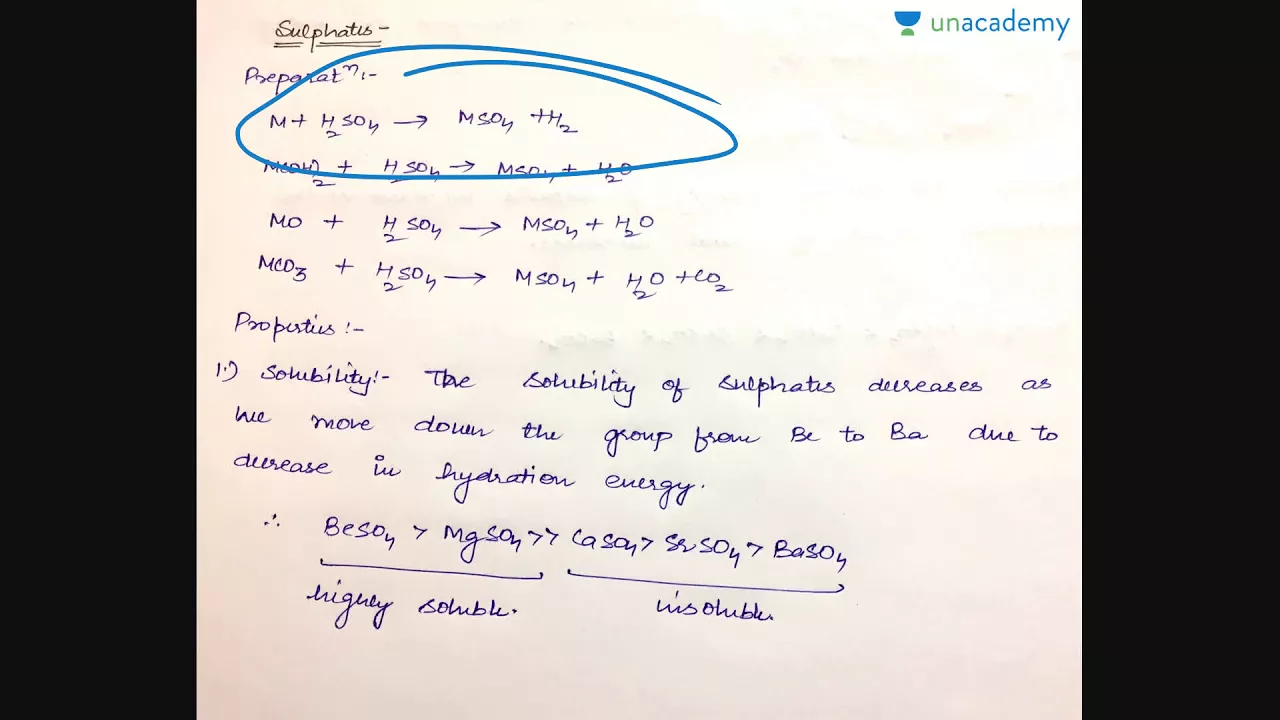 unacademy
Sulphates -
Preparatⁿ :-
M + H2SO4 → MSO4 + H2
M(OH)2 + H2SO4 → MSO4 + H2O
MO + H2SO4 → MSO4 + H2O
MCO3 + H2SO4 → MSO4 + H2O + CO2
Properties :-
1.) Solubility:- The solubility of sulphates decreases as
we move down the group from Be to Ba due to
decrease in hydration energy.
∴ BeSO4 > MgSO4 >> CaSO4 > SrSO4 > BaSO4
highly soluble. insoluble.